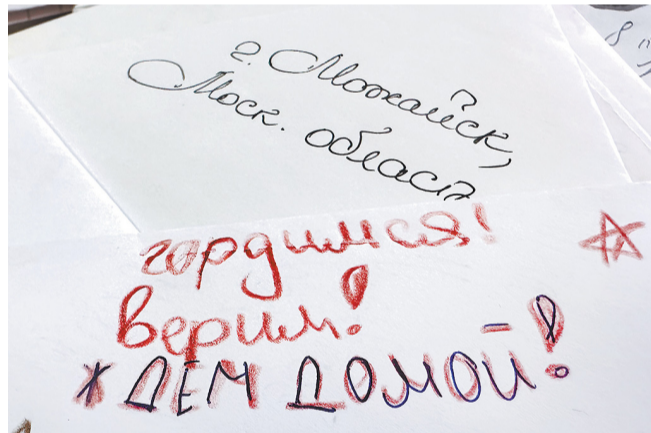 г. Можайск,
Моск. область
гордимся!
верим!
ждем домой!
8